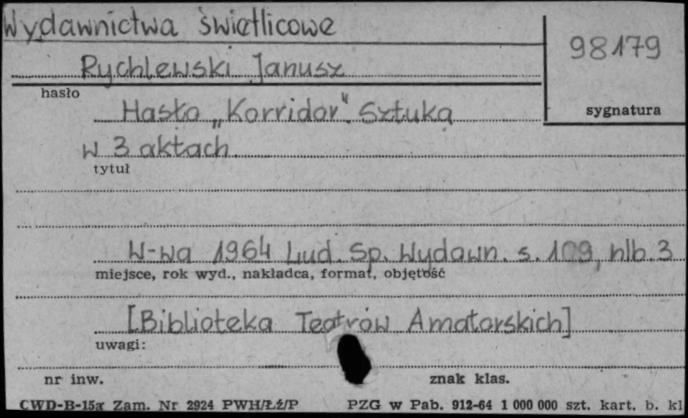 Wydawnictwa świetlicowe
98179
Rychlewski Janusz
hasło
sygnatura
Hasło „Korridor". Sztuka
w 3 aktach.
tytuł
W-wa 1964 Lud. Sp. Wydawn. s. 109, nlb. 3
miejsce, rok wyd., nakładca, format, objętość
[Biblioteka Teatrów Amatorskich]
uwagi:
nr inw.
znak klas.
CWD-B-15a Zam. Nr 2924 PWH/Łź/P
PZG w Pab. 912-64 1 000 000 szt. kart. b. kl